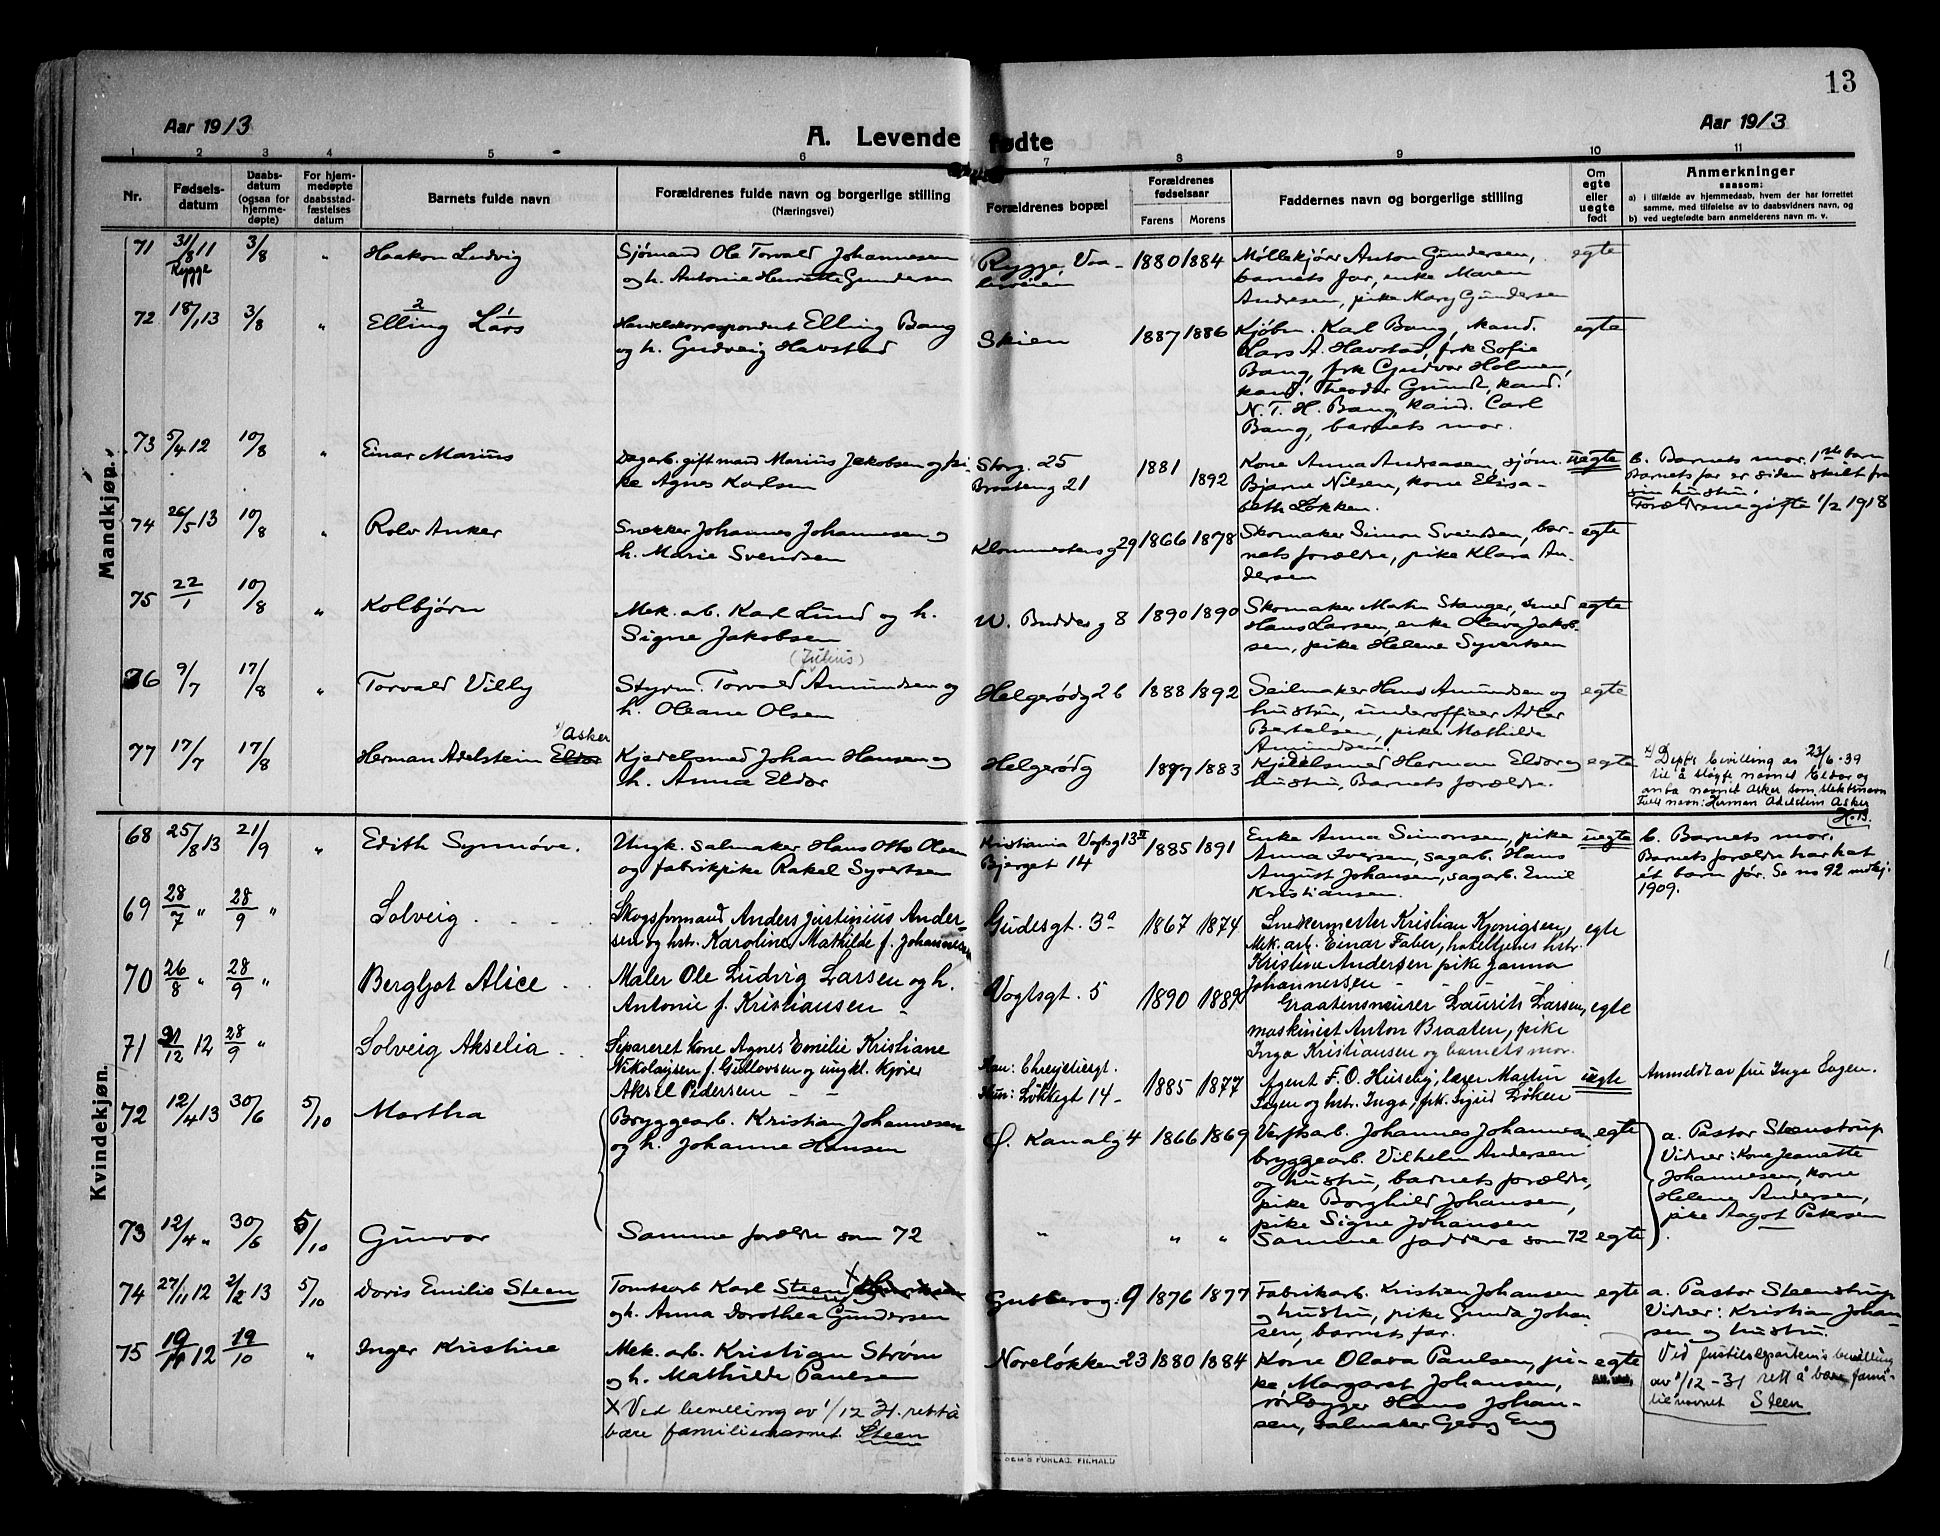 13
Aar 1913
A. Levende fødte
Aar 1913
1 2 3 4 5 6 7 8 9 10 11
Nr.
Fødsels-
datum
Daabs-
datum
(ogsaa for
hjemme-
døpte)
For hjem-
medøpte
daabsstad-
fæstelses
datum
Barnets fulde navn
Forældrenes fulde navn og borgerlige stilling
(Næringsvei)
Forældrenes bopæl
Forældrenes
fødselsaar
Farens Morens
Faddernes navn og borgerlige stilling
Om
egte
eller
uegte
født
Anmerkninger
saasom:
a) i tilfælde av hjemmedaab, hvem der har forrettet
samme, med tilføielse av to daabsvidners navn, og
b) ved uegtefødte barn anmelderens navn m. v.
Mandkjøn.
71 31/8 11 3/8 " Haakon Ludvig
Rygge
Sjömand Ole Torvald Johannesen
og h. Antonie Henriette Gundersen
Rygge, Vaa-
lerveien
1880 1884
Møllekjører Anton Gundersen,
barnets far, enke Maren
Andresen, pike Mary Gundersen
egte
72 18/1 13 3/8 " Elling Lars
2 1
Handelskorrespondent Elling Bang
og h. Gudveig Havstad
Skien
1887 1886
Kjøbm. Karl Bang, kand.
Lars A. Havstad, frk Sofie
Bang, frk Gudvor Holmen,
kand. Theodor Grundt, kand.
N. T. H. Bang, kand. Carl
Bang, barnets mor.
egte
73 5/4 12 10/8 " Einar Marius
Dagarb. gift mand Marius Jakobsen og pi-
ke Agnes Karlsen
Storg. 25
Braateng 21
1881 1892
Kone Anna Andreasen, sjöm.
Bjarne Nilsen, kone Elisa-
beth Løkken.
uegte
b. Barnets mor. 1ste barn
Barnets far er siden skilt fra
sin hustru.
Forældrene gifte 1/2 1918
74 26/5 13 10/8 " Rolv Anker
Snekker Johannes Johannesen og
h. Marie Svendsen
29 1866 1878
Skomaker Simon Svendsen, bar-
nets forældre, pike Klara An-
dersen
egte
75 22/1 10/8 " Kolbjørn
Mek. arb. Karl Lund og h.
Signe Jakobsen
W. Budde g 8 1890 1890
Skomaker Martin Stanger, smed
Hans Larsen, enke Olava Jakob-
sen, pike Helene Syvertsen
egte
76 9/7 17/8 " Torvald Villy
(Julius)
Styrm. Torvald Amundsen og
h. Oleane Olsen
Helgerødg 26 1888 1892
Seilmaker Hans Amundsen og
hustru, underofficer Adler
Bertelsen, pike Mathilde
Amundsen.
egte
77 17/7 17/8 Herman Adelstein Eldor
x) Asker
Kjedelsmed Johan Hansen og
h. Anna Eldor
Helgerødg
1877 1883
Kjedelsmed Herman Eldor og
hustru, Barnets forældre.
egte
x) Depts bevilling av 23/6-39
til å sløyfe navnet Eldor og
anta navnet Asker som slektsnavn
Fullt navn: Herman Adelstein Asker
H.B.
Kvindekjøn.
68 25/8 13 21/9 " Edith Synnøve.
Ungk. salmaker Hans Otto Olsen
og fabrikpike Rakel Syvertsen
Kristiania Vogtsg 13 II
Bjerget 14
1885 1891
Enke Anna Simonsen, pike
Anna Iversen, sagarb. Hans
August Johansen, sagarb. Emil
Kristiansen.
uegte
b. Barnets mor.
Barnets forældre har hat
ét barn før. Se no 92 mdkj.
1909.
69 28/7 " 28/9 " Solveig
Skogsformand Anders Justinius Ander-
sen og hstr. Karoline Mathilde f. Johannesen
Gudesgt. 3a 1867 1874
Snekkermester Kristian Kjønigsen,
Mek. arb. Einar Faber, hoteltjeners hstr.
Kristine Andersen pike Janna
Johannessen
egte
70 26/8 " 28/9 " Bergljot Alice
Maler Ole Ludvig Larsen og h.
Antonie f. Kristiansen
Vogtsgt. 5 1890 1889
Laurits Larsen,
maskinist Anton Braaten, pike
Inga Kristiansen og barnets mor.
egte
71 31/12 12 28/9 " Solveig Akselia
Separeret kone Agnes Emilie Kristiane
Nikolaysen f. Gullovsen og ungkl. kjører
Aksel Pedersen
Hun: Løkkegt 14 -
1885 1877
Agent F. O. Huseby, lærer Martin
Sogen og hstr. Inga, frk. Sigrid Løken
uegte
Anmeldt av fru Inga Sogen.
72 12/4 13 30/6 5/10 Martha
Bryggearb. Kristian Johannesen
og h. Johanne Hansen
Ø. Kanalg 4 1866 1869
Verftsarb. Johannes Johannesen,
bryggearb. Vilhelm Andersen
og hustru, barnets forældre,
pike Borghild Johansen,
pike Signe Johansen
egte
a. Pastor Steenstrup
Vidner: Kone Jeanette
Johannesen, kone
Helene Andersen,
pike Aagot Petersen
73 12/4 " 30/6 5/10 Gunvor
Samme forældre som 72
" " "
Samme faddere som 72 egte
74 27/11 12 2/2 13 5/10 Doris Emilie Steen
Tomtearb Karl Steen x
og h. Anna Dorothea Gundersen
9 1876 1877
Fabrikarb. Kristian Johansen
og hustru, pike Gunda Johan-
sen, barnets far.
egte
a. Pastor Steenstrup
Vidner: Kristian Johan-
sen og hustru.
75 19/11 12 19/10 " Inger Kristine
Mek. arb. Kristian Strøm
og h. Mathilde Paulsen
Noreløkken 23 1880 1884
Kone Olava Paulsen, pi-
ke Margaret Johansen,
rørlægger Hans Johan-
sen, salmaker Georg Eng
egte
Ved Justisdepartem's bevilling
av 1/12-31 rett å bære fami-
lienavnet Steen
x Ved bevilling av 1/12 31. rett å
bære familienavnet Steen
SEM'S FORLAG, FR.HALD